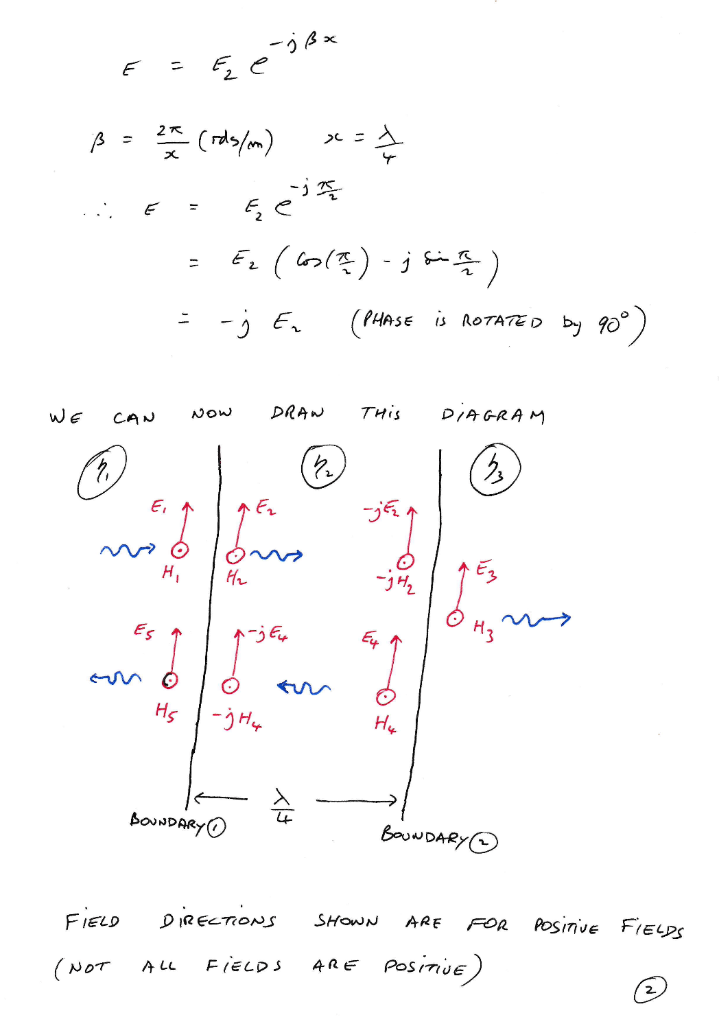 E = E₂ e^(-jβx)
β = 2π/x (rds/m) x = λ/4
∴ E = E₂ e^(-jπ/2)
= E₂ (cos(π/2) - j sin π/2)
= -j E₂ (PHASE is ROTATED by 90°)
WE CAN NOW DRAW THIS DIAGRAM
η₁ η₂ η₃
E₁ E₂ -jE₂
H₁ H₂ -jH₂ E₃
H₃
E₅ -jE₄ E₄
H₅ -jH₄ H₄
λ/4
BOUNDARY ① BOUNDARY ②
FIELD DIRECTIONS SHOWN ARE FOR POSITIVE FIELDS
(NOT ALL FIELDS ARE POSITIVE)
②